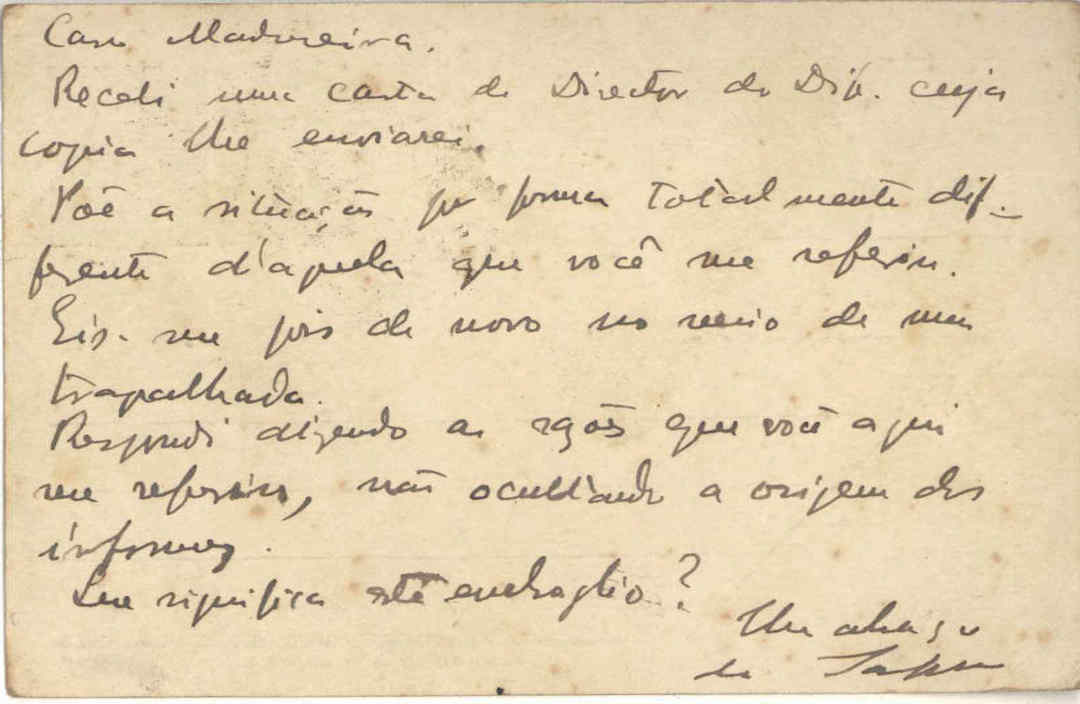 Caro Madureira.
Recebi uma carta do Director do Dip. cuja
copia lhe enviarei.
Põe a situação por forma totalmente dif-
ferente d'aquela que você me referiu.
Eis-me pois de novo no meio de uma
trapalhada.
Respondi dizendo as rasões que você aqui
me referiu, não ocultando a origem dos
informes.
Que significa este embroglio?
Um abraço
do